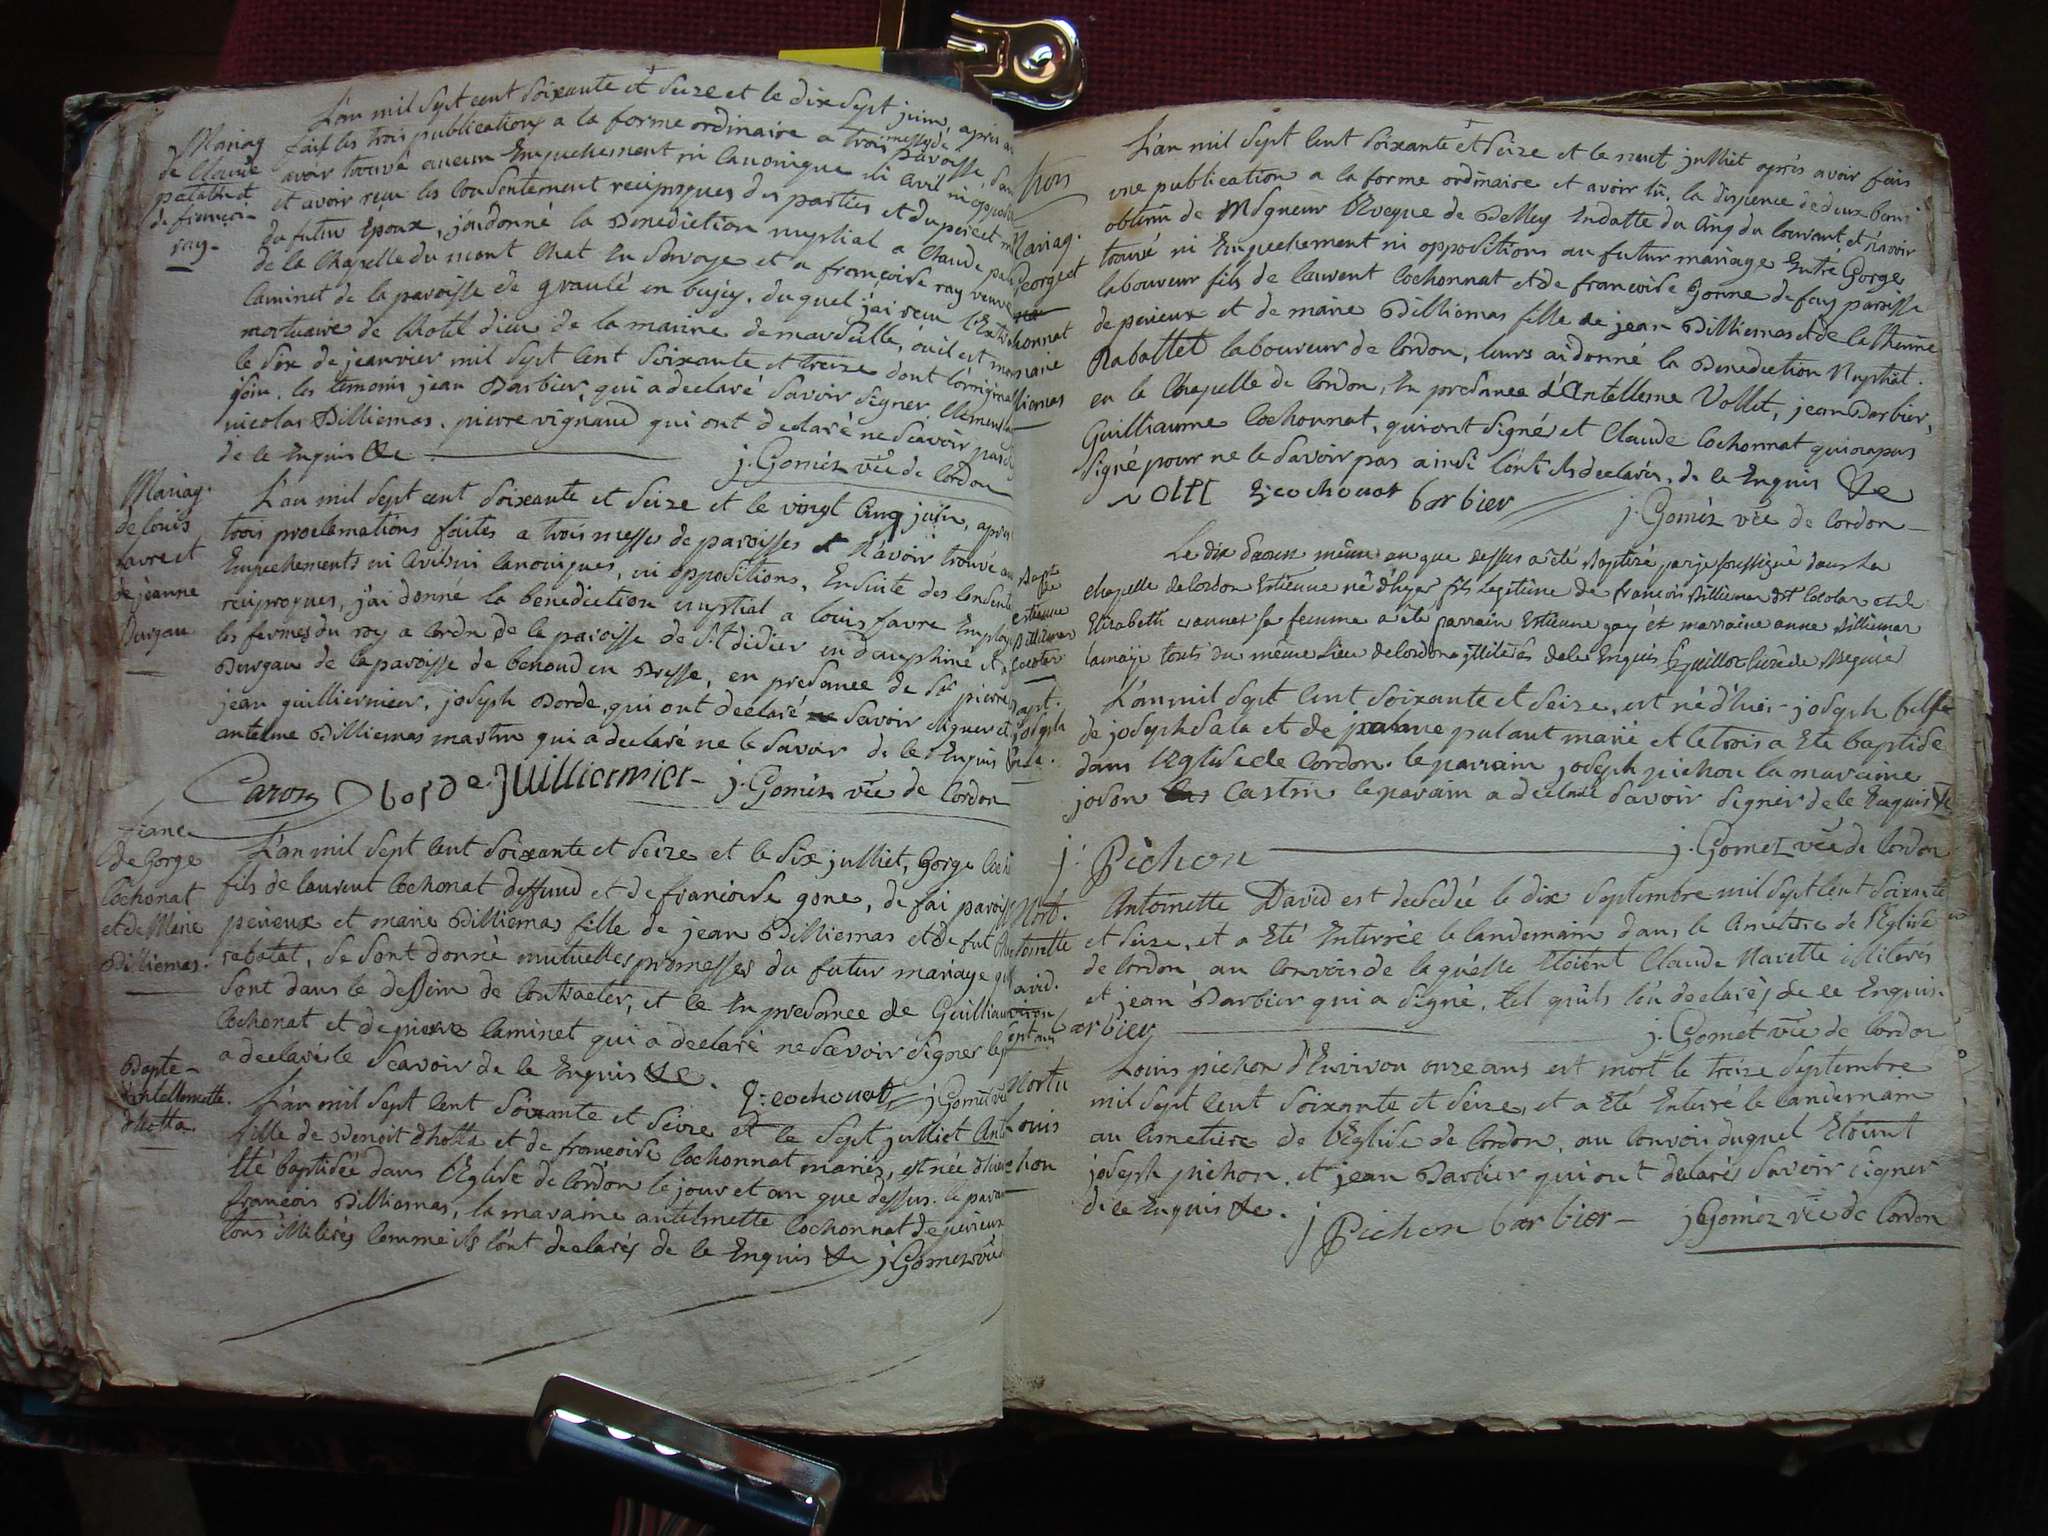 Mariag
de Claude
patabet
de françoi-
ray-
L'an mil sept cent soixante et seize et le dix sept juin, après
fait les trois publications a la forme ordinaire a trois messe de paroisse, sans
avoir trouvé aucun Empechement ni canonique ni civil ni opposi
et avoir reçu les consentement reciproques des parties et du pere et
du futur Epoux, j'ai donné la Benediction nuptial a Claude pa
de la Chapelle du mont Chat en Savoye et a françoise ray veuve
Caminet de la paroisse de grаulé en bugey, duquel j'ai reçu l'Extr
mortuaire de l'hotel dieu de la marine de marseille, où il est mo
le six de jeanvier mil sept cent soixante et treize dont l'original
join. les temoins jean Barbier, qui a declaré Savoir Signer, Clement
nicolas Billiemas. pierre vignaud qui ont declaré ne Scavoir pas
de ce Enquis &c j. Gomés vic de Cordon
Mariag.
de louis
favre et
de jeanne
Durgau
L'an mil sept cent soixante et seize et le vingt cinq juin, après
trois proclamations faites a trois messes de paroisses et n'avoir trouvé au
Empechements ni civils ni canoniques, ni oppositions, Ensuite des consente
reciproques, j'ai donné la benediction nuptial a louis favre Employ
les fermes du roy a Cordn de la paroisse de St didier en dauphiné et a
Durgau de la paroisse de benoud en Bresse, en presance de Sr pierre
jean guilliermier, joseph Borde, qui ont declaré Savoir Signer et
antelme Billiemas martin qui a declaré ne le Savoir de ce Enquis
Caron borde Juilliermier j. Gomés vic de Cordon
fiance
de Gorge
Cochonat
et de Marie
Billiemas.
L'an mil sept cent soixante et seize et le six julliet, Gorge Coch
fils de laurent Cochonat deffund et de francoise gone, de fai parois
perieux et marie Billiemas fille de jean Billiemas et de fut
rabatet, se sont donné mutuelles promesses du futur mariage qu
sont dans le dessein de contracter, et ce En presance de Guilliau
Cochonat et de pierre Caminet qui a declaré ne Scavoir signer le
a declaré le Scavoir de ce Enquis &c. g: cochonat j Gomés vi
Bapte
d'antellemette
d'hotta.
L'an mil sept cent soixante et seize et le sept julliet Ant
fille de Benoit d'hotta et de francoise Cochonnat mariés, est née d'hier
Eté baptisée dans l'Eglise de Cordon le jour et an que dessus. le para
francois Billiemas, la maraine antelmette Cochonnat de perieux
tous illiterés Comme ils l'ont declarés de ce Enquis &c j Gomés vic
Mariag.
George et
honnat
marie
lliemas
L'an mil sept cent soixante et seize et le neuf julliet après avoir fais
une publication a la forme ordinaire et avoir lu la dispence de deux bans
obtenu de Mgneur l'Eveque de Belley En datte du cinq du courant, et n'avoir
trouvé ni Empechement ni oppositions au futur mariage Entre Gorge
laboureur fils de laurent Cochonnat et de francoise Gonne de fay paroisse
de perieux et de marie Billiemas fille de jean Billiemas et de Catherine
Rabattet laboureur de Cordon, leurs ai donné la Benediction Nuptial.
en la Chapelle de Cordon, En presance d'Antellme Vollet, jean Barbier,
Guilliaume Cochonnat, qui ont Signé et Claude Cochonnat qui n'a pas
Signé pour ne le Savoir pas ainsi l'ont ils declarés, de ce Enquis &c
volet g: cochonat barbier j. Gomés vic de Cordon
Bapt
de
estienne
Billiemas
Cocolar
Le dix daoust même an que dessus a été Baptisé par je soussigné dans la
chapelle de Cordon Estienne né d'hyer fils legitime de francois Billiemas dit Cocolar et de
Elizabeth sa femme a été parrain Estienne gay et marraine anne Billiemas
tous du même lieu de Cordon illiterés de ce Enquis Guillot Curé de Bregnié
Bapt.
joseph
Sala.
L'an mil sept cent soixante et seize, est né d'hier joseph fils
de joseph Sala et de jeanne pulaut marié et le trois a Eté baptisé
dans l'Eglise de Cordon. le parrain joseph pichon la maraine
joson Castin le parain a declaré savoir signer de ce Enquis &c
j. Pichon j. Gomez vic de Cordon
Mort.
Antoinette
David.
Antoinette David est decedée le dix Septembre mil sept cent soixante
et seize, et a Eté Enterrée le landemain dans le cimetiere de l'Eglise
de Cordon, au convois de laquelle Etoient Claude Navette illiterés
et jean Barbier qui a signé, tel qu'ils l'on declarés de ce Enquis.
barbier j. Gomés vic de Cordon
Mortu
Louis
chon
Louis pichon d'Environ onze ans est mort le treize Septembre
mil sept cent soixante et seize, et a Eté Enterré le landemain
au Cimetiere de l'Eglise de Cordon, au convois duquel Etoient
joseph pichon, et jean Barbier qui ont declarés savoir signer
de ce Enquis &c.
j Pichon barbier j Gomez vic de Cordon